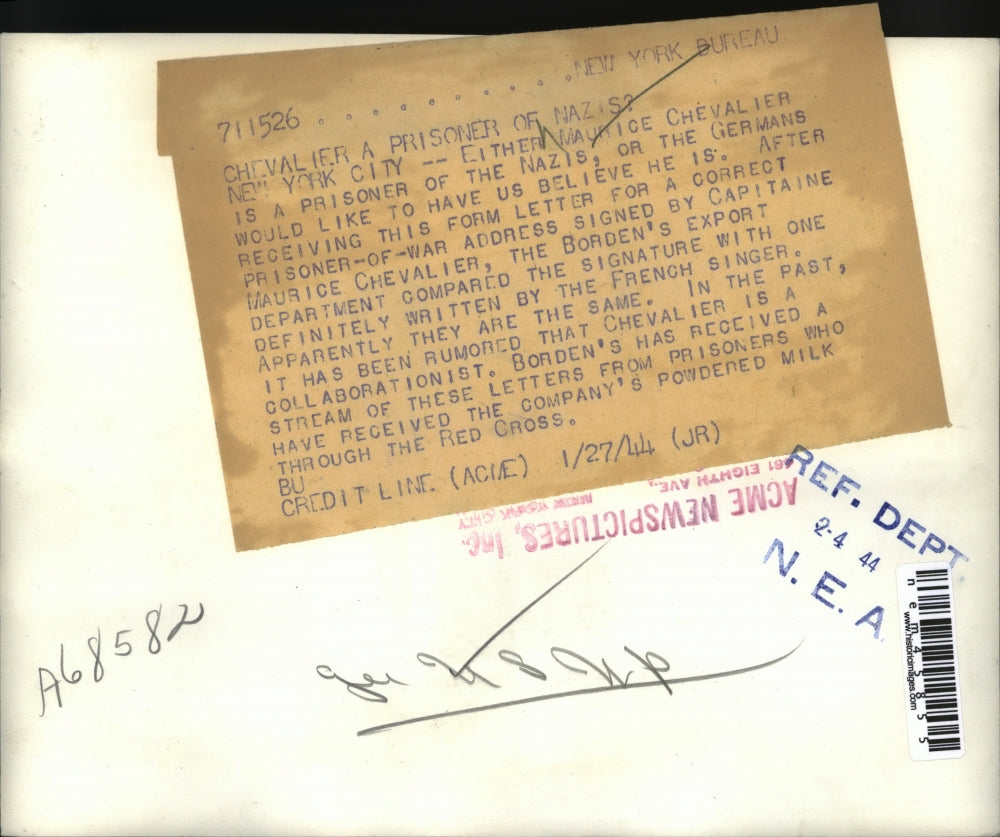 711526 . . . . . . . . . . NEW YORK BUREAU
CHEVALIER A PRISONER OF NAZIS?
NEW YORK CITY -- EITHER MAURICE CHEVALIER
IS A PRISONER OF THE NAZIS, OR THE GERMANS
WOULD LIKE TO HAVE US BELIEVE HE IS. AFTER
RECEIVING THIS FORM LETTER FOR A CORRECT
PRISONER-OF-WAR ADDRESS SIGNED BY CAPITAINE
MAURICE CHEVALIER, THE BORDEN'S EXPORT
DEPARTMENT COMPARED THE SIGNATURE WITH ONE
DEFINITELY WRITTEN BY THE FRENCH SINGER.
APPARENTLY THEY ARE THE SAME. IN THE PAST,
IT HAS BEEN RUMORED THAT CHEVALIER IS A
COLLABORATIONIST. BORDEN'S HAS RECEIVED A
STREAM OF THESE LETTERS FROM PRISONERS WHO
HAVE RECEIVED THE COMPANY'S POWDERED MILK
THROUGH THE RED CROSS.
BU
CREDIT LINE (ACME) 1/27/44 (JR)
ACME NEWSPICTURES, Inc.
461 EIGHTH AVE.,
NEW YORK CITY
REF. DEPT.
2-4 44
N. E. A
A68582
nem45855
www.historicimages.com